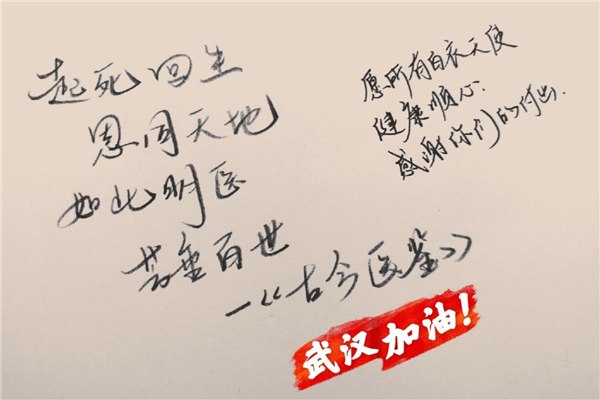 起死回生
恩同天地
如此明医
芳垂百世
—《古今医鉴》
愿所有白衣天使
健康顺心.
感谢你们的付出.
武汉加油!